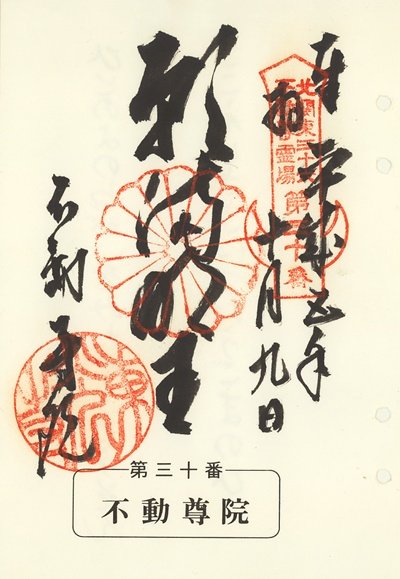 奉拝
平成五年
十月九日
北関東三十六
不動霊場第三十番
願満明王
不動尊院
第三十番
不動尊院